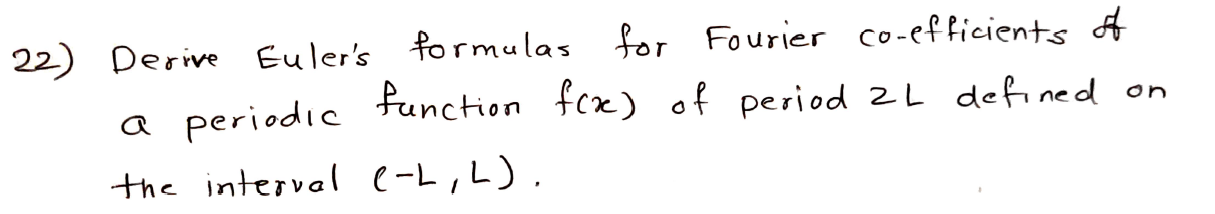 22) Derive Euler's formulas for Fourier co-efficients of
a periodic function f(x) of period 2L defined on
the interval (-L, L).